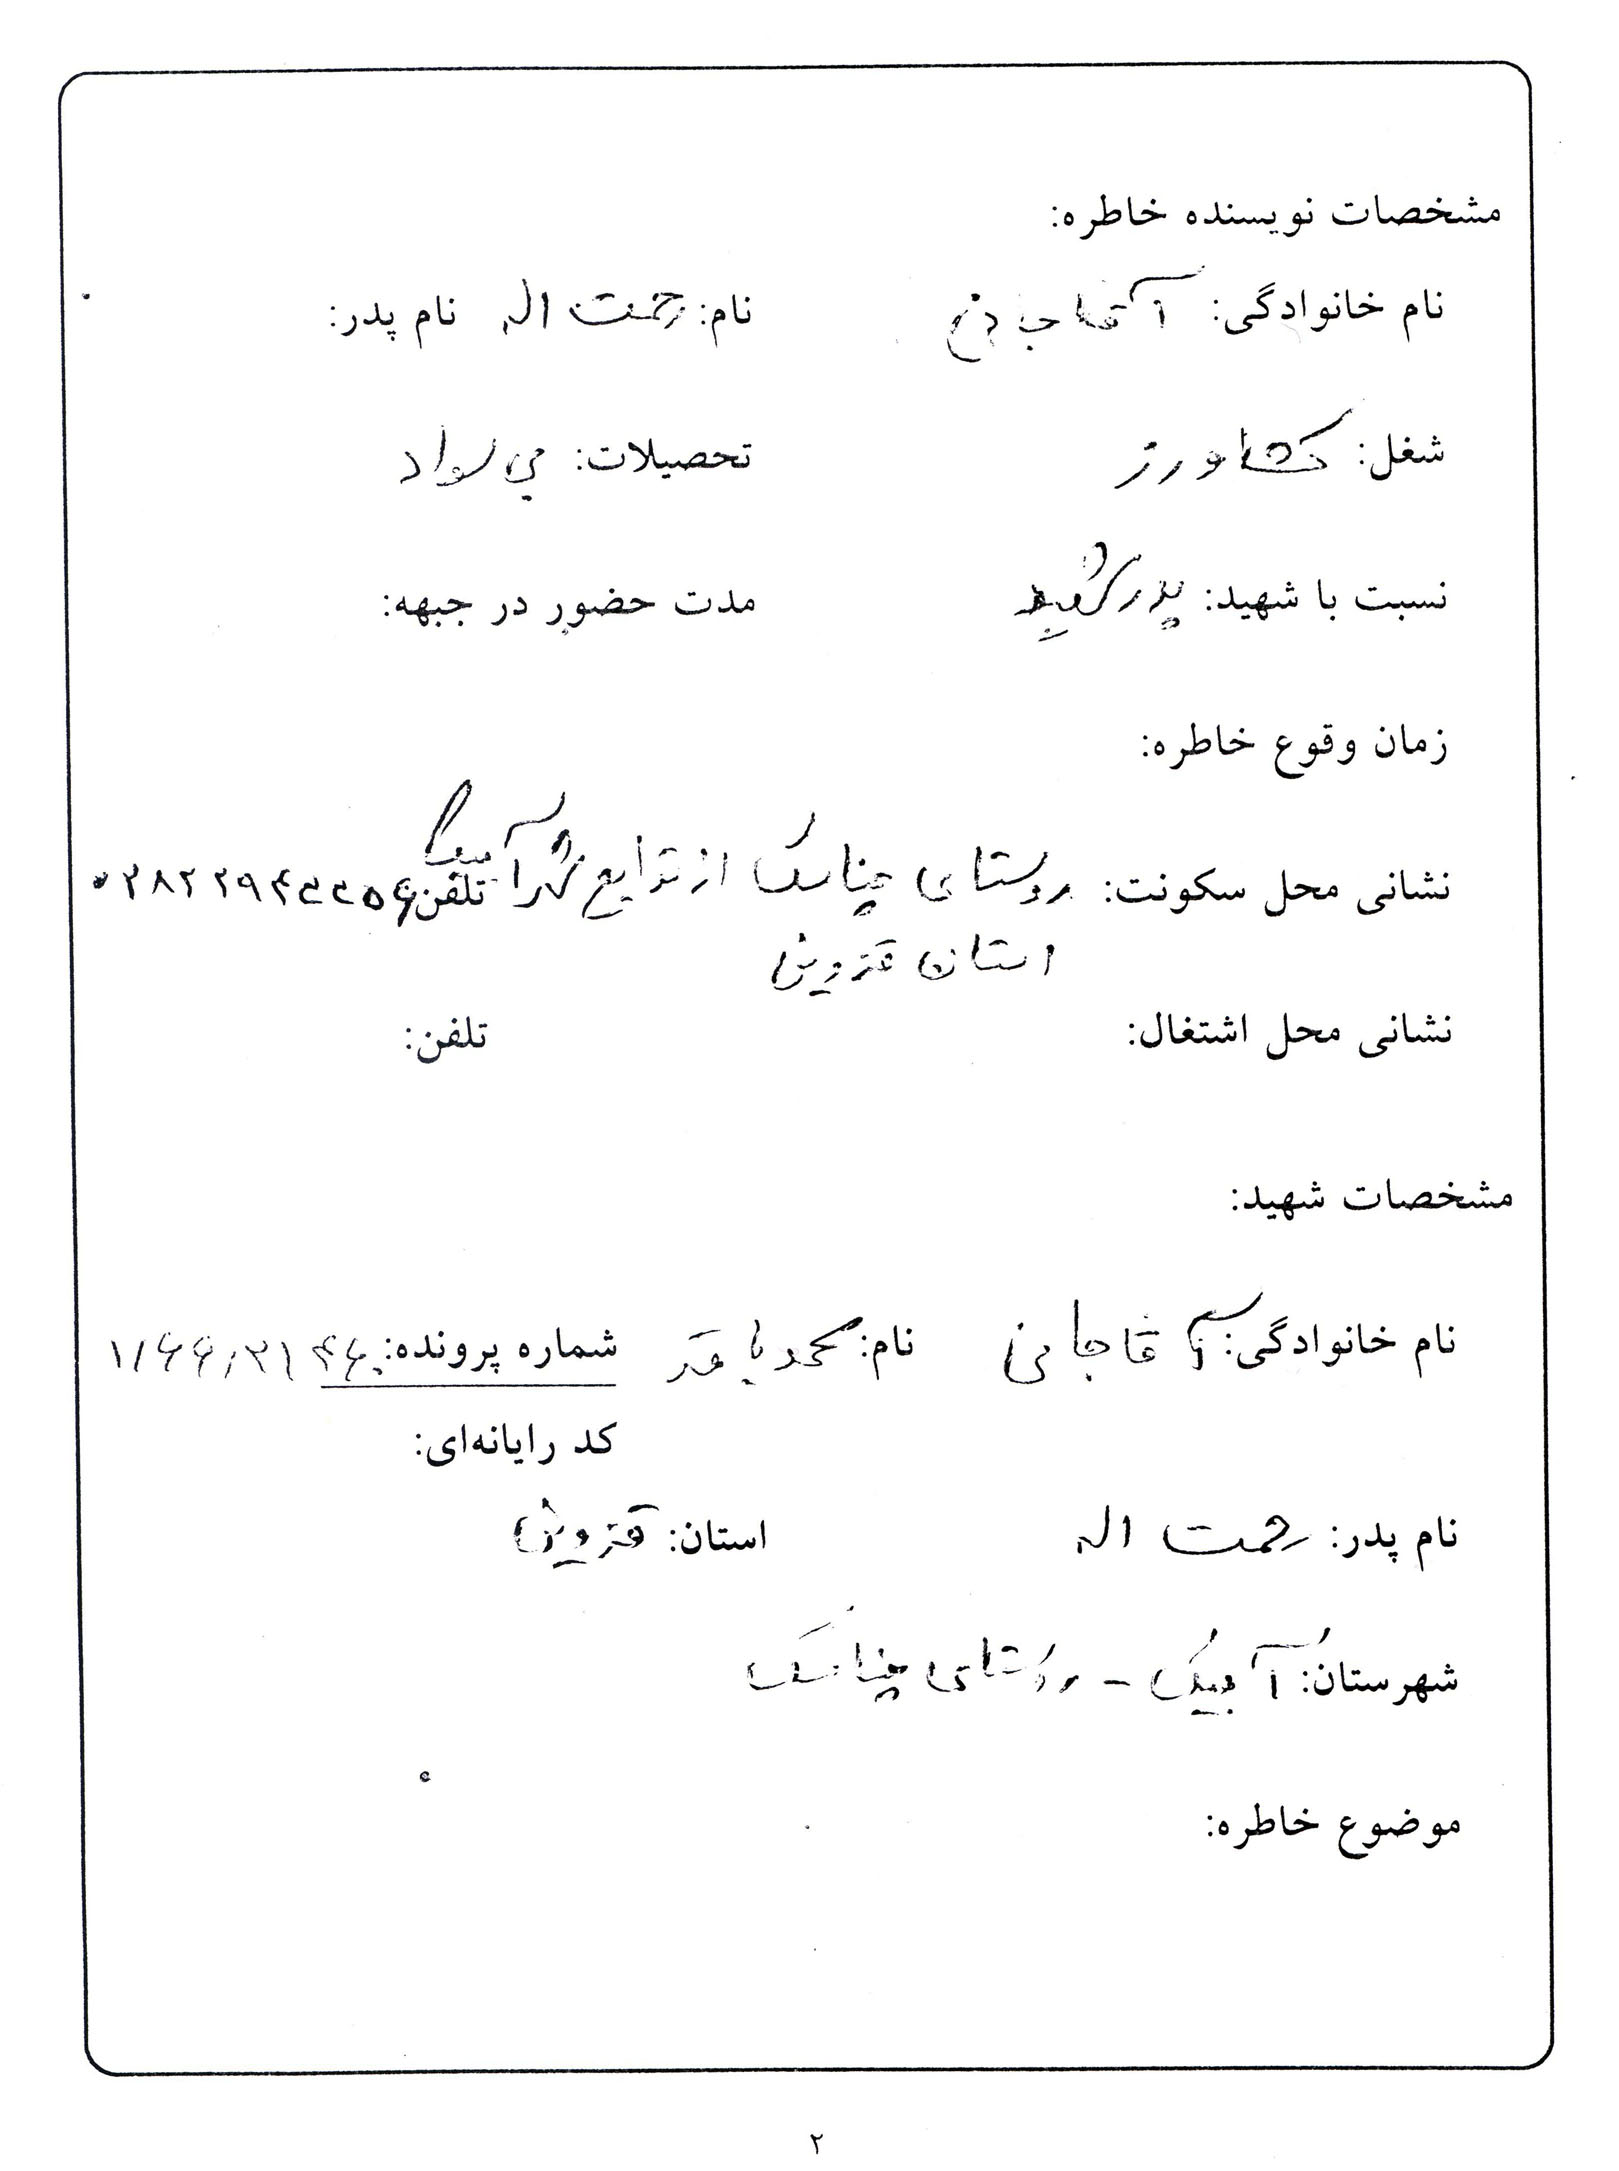 مشخصات نویسنده خاطره:
نام خانوادگی: آقاجانی نام: رحمت اله نام پدر:
شغل: کشاورز تحصیلات: بی سواد
نسبت با شهید: پدر شهید مدت حضور در جبهه:
زمان وقوع خاطره:
نشانی محل سکونت: روستای چناسک از توابع آبیک تلفن:
استان قزوین
نشانی محل اشتغال: تلفن:
مشخصات شهید:
نام خانوادگی: آقاجانی نام: محمدباقر شماره پرونده:
کد رایانه‌ای:
نام پدر: رحمت اله استان: قزوین
شهرستان: آبیک - روستای چناسک
موضوع خاطره:
۲